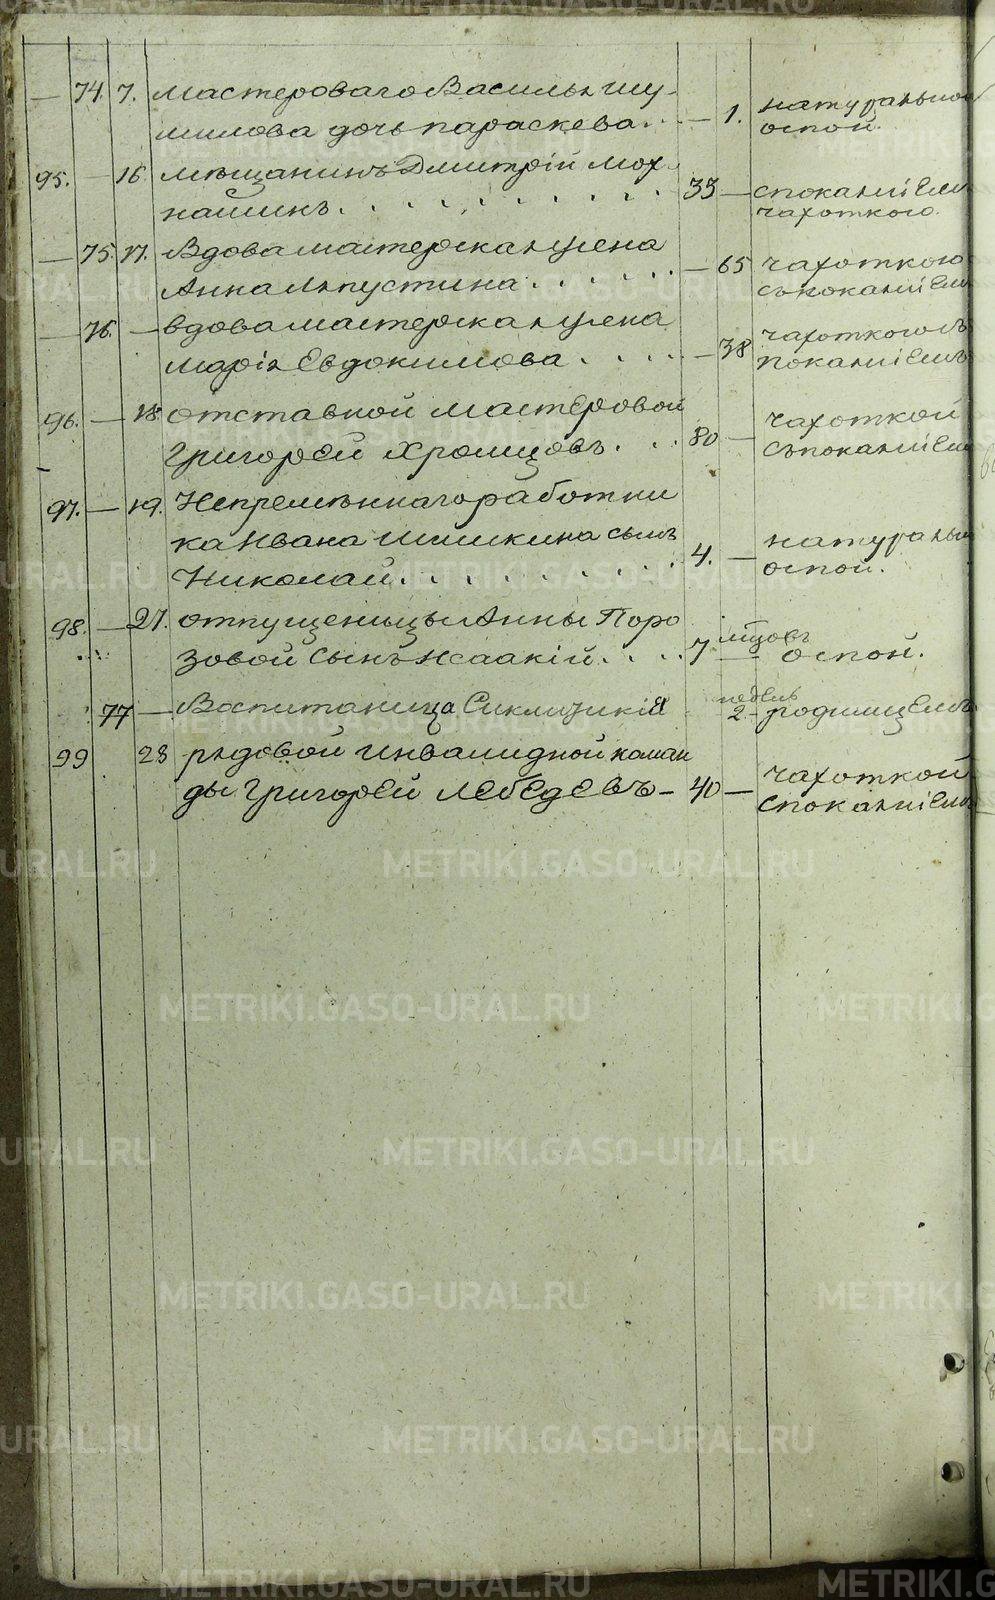 — 74. 7. мастероваго Василья шу-
милова дочь параскева. — 1. натуральной
оспой.
95. — 16 мѣщанинъ Дмитрій мох-
нашинъ. 33 — спокаяніемъ
чахоткою.
— 75. 17. Вдова мастерская жена
Анна Лапустина. — 65 чахоткою
съпокаяніем
— 76. — вдова мастерская жена
Марія Евдокимова. — 38 чахоткою съ
покаяніемъ
96. — 18. отставной мастеровой
Григорей Хромцовъ. 80 — чахоткой
съпокаяніем
97. — 19. Непремѣннаго работни
ка Ивана Шишкина сынъ
Николай. 4. — натуральн
оспой.
98. — 27. отпущеницы Анны Поро
зовой сынъ Исаакій. 7 мцовъ — оспой.
77 — Воспитаница 2 недель родимцемъ
99 28 рядовой инвалидной коман
ды Григорей Лебедевъ — 40 — чахоткой
спокаяніемъ
METRIKI.GASO-URAL.RU